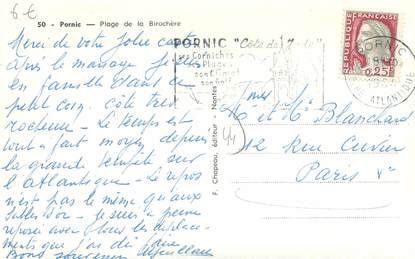 6€
50 - Pornic — Plage de la Birochère
Merci de votre jolie carte
après le mariage je suis
en famille dans ce
petit coin, côte très
rocheuse - Le temps est
tout à fait moyen, depuis
la grande tempête sur
l'atlantique - Le repos
n'est pas le même qu'aux
je suis à peine
reposée avec tous les déplace-
ments que j'ai dû faire
Bons souvenirs
F. Chapeau, Éditeur - Nantes
44
PORNIC "Côte de Jade"
Ses Corniches
Ses Plages
son Climat
son Golf
PORNIC
LOIRE ATLANTIQUE
REPUBLIQUE FRANÇAISE
0,25F
POSTES
M et Me Blanchard
12 Rue Cuvier
Paris Ve